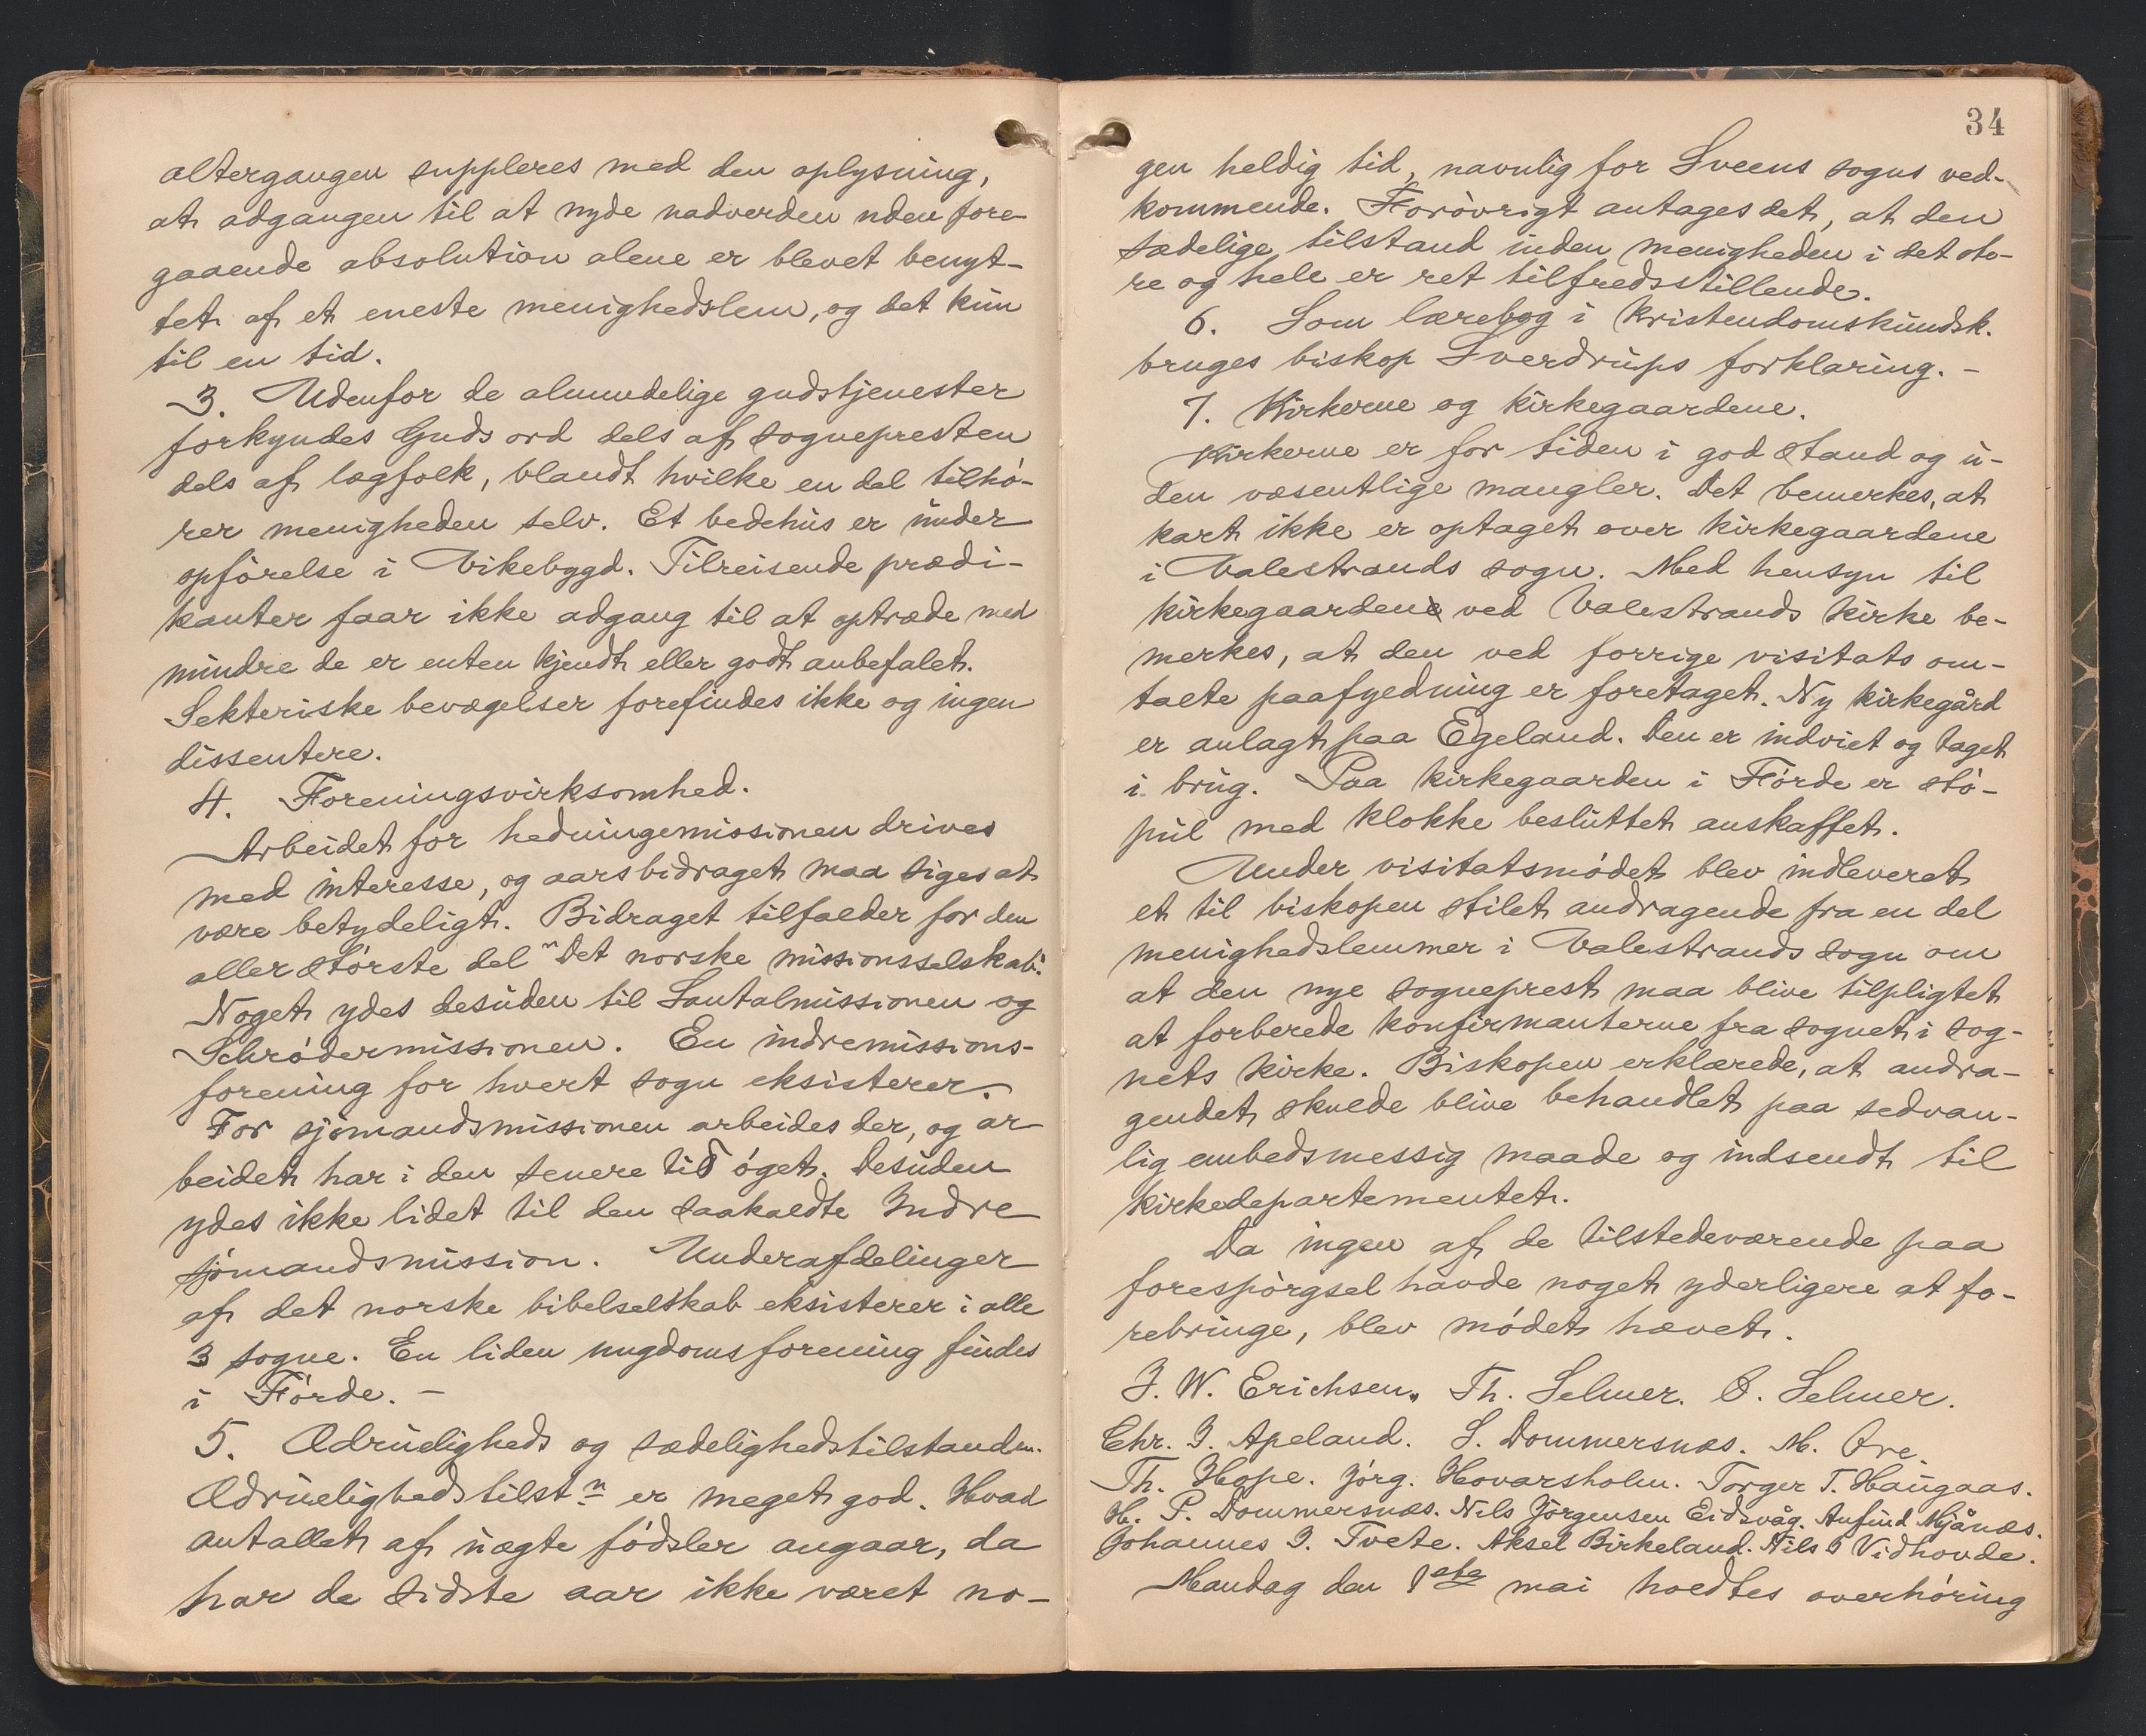 altergangen suppleres med den oplysning,
at adgangen til at nyde nadverden uden fore-
gaaende absolution alene er blevet benyt-
tet af et eneste menighedslem, og det kun
til en tid.
3. Udenfor de almindelige gudstjenester
forkyndes Guds ord dels af sognepresten
dels af lægfolk, blandt hvilke en del tilhø-
rer menigheden selv. Et bedehus er under
opførelse i Vikebygd. Tilreisende prædi-
kanter faar ikke adgang til at optræde med
mindre de er enten kjendt eller godt anbefalet.
Sekteriske bevægelser forefindes ikke og ingen
dissentere.
4. Foreningsvirksomhed.
Arbeidet for hedningemissionen drives
med interesse, og aarsbidraget maa siges at
være betydeligt. Bidraget tilfalder for den
aller største del "Det norske missionsselskab".
Noget ydes desuden til Santalmissionen og
Schrødermissionen. En indremissions-
forening for hvert sogn eksisterer.
For sjømandsmissionen arbeides der, og ar-
beidet har i den senere tid øget. Desuden
ydes ikke lidet til den saakaldte Indre
sjømandsmission. Underafdelinger
af det norske bibelselskab eksisterer i alle
3 sogne. En liden ungdomsforening findes
i Førde. -
5. Ædrueligheds og sædelighedstilstanden.
Ædruelighedstilst<sup>n</sup> er meget god. Hvad
antallet af uægte fødsler angaar, da
har de sidste aar ikke været no-
34
gen heldig tid, navnlig for Sveens sogns ved-
kommende. Forøvrigt antages det, at den
sædelige tilstand inden menigheden i det sto-
re og hele er ret tilfredsstillende.
6. Som lærebog i kristendomskundsk.
bruges biskop Sverdrups forklaring. -
7. Kirkerne og kirkegaardene.
Kirkerne er for tiden i god stand og u-
den væsentlige mangler. Det bemerkes, at
kart ikke er optaget over kirkegaardene
i Valestrands sogn. Med hensyn til
kirkegaarden ved Valestrands kirke be-
merkes, at den ved forrige visitats om-
talte paafyldning er foretaget. Ny kirkegård
er anlagt paa Egeland. Den er indviet og taget
i brug. Paa kirkegaarden i Førde er stø-
pul med klokke besluttet anskaffet.
Under visitatsmødet blev indleveret
et til biskopen stilet andragende fra en del
menighedslemmer i Valestrands sogn om
at den nye sogneprest maa blive tilpligtet
at forberede konfirmanterne fra sognet i sog-
nets kirke. Biskopen erklærede, at andra-
gendet skulde blive behandlet paa sedvan-
lig embedsmessig maade og indsendt til
kirkedepartementet.
Da ingen af de tilstedeværende paa
forespørgsel havde noget yderligere at fo-
rebringe, blev mødet hævet.
J. W. Erichsen. Th. Selmer. O. Selmer.
Chr. J. Apeland. S. Dommersnæs. M. Øre.
Th. Hope. Jørg. Hovarsholm. Torger T. Haugaas.
H. P. Dommersnæs. Nils Jørgensen Eidsvåg. Anfind Mjånæs.
Johannes J. Tvete. Aksel Birkeland. Nils O Vidhovde.
Mandag den 1ste mai holdtes overhøring